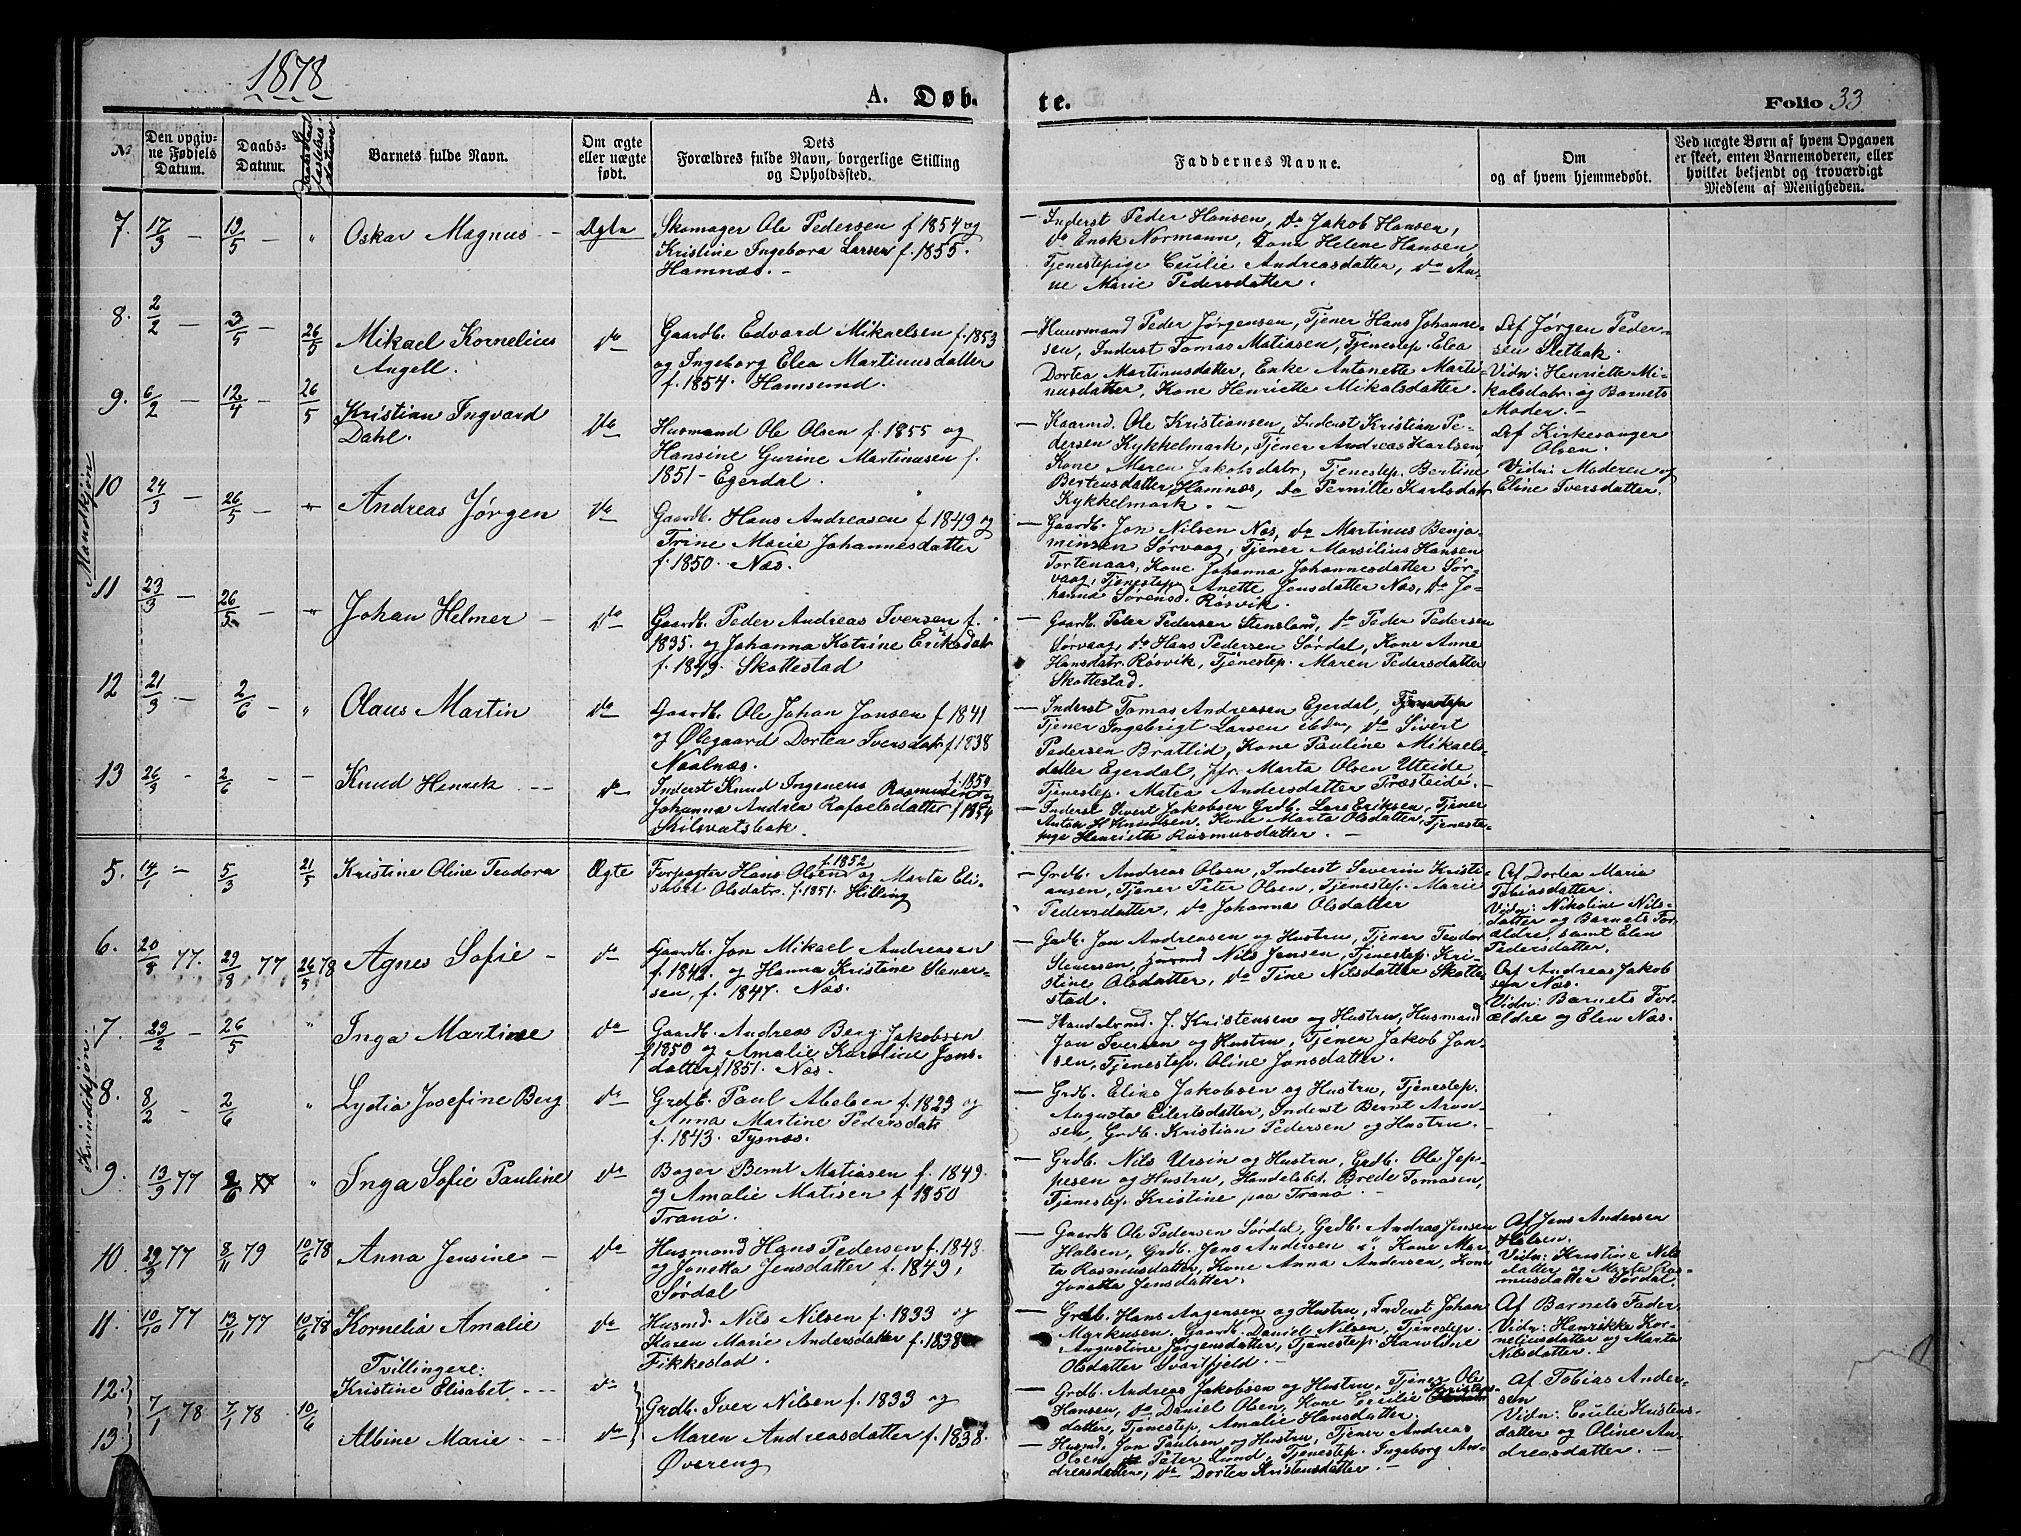 1878
A. Døb-
te.
Folio 33
№
Den opgiv-
ne Fødsels
Datum.
Daabs-
Datum.
Daabs Stad-
fæstelses-
datum
Barnets fulde Navn.
Om ægte
eller uægte
født.
Dets
Forældres fulde Navn, borgerlige Stilling
og Opholdssted.
Faddernes Navne.
Om
og af hvem hjemmedøbt.
Ved uægte Børn af hvem Opgaven
er skeet, enten Barnemoderen, eller
hvilket bekjendt og troværdigt
Medlem af Menigheden.
Mandkjøn
7. 17/3 — 19/5 — " Oskar Magnus — Ægte
Skomager Ole Pedersen f 1854 og
Kristine Ingebora Larsen f. 1855.
Hamnæs. —
— Inderst Peder Hansen, do Jakob Hansen,
do Enok Normann, Kone Helene Hansen,
Tjenestepige Cecilie Andreasdatter, do An-
ne Marie Pedersdatter.
8. 2/2 — 3/5 — 26/5 Mikael Kornelius
Angell. do
Gaardb. Edvard Mikaelsen f. 1853
og Ingeborg Elea Martinusdatter
f. 1854. Hamsund.
— Huusmand Peder Jørgensen, Tjener Hans Johanne-
sen, Inderst Tomas Matiasen, Tjenestep. Elea
Dortea Martinusdatter, Enke Antonette Marti-
nusdatter, Kone Henriette Mikalsdatter.
Af Jørgen Peder-
sen Sletbak.
Vidn: Henriette Mi-
kalsdatr. og Barnets
Moder. —
9. 6/2 — 12/4 — 26/5 Kristian Ingvard
Dahl. do
Husmand Ole Olsen f. 1855 og
Hansine Gurine Martinusen f.
1851 — Egerdal.
— Kaarmd. Ole Kristiansen, Inderst Kristian Pe-
dersen Kykkelmark, Tjener Andreas Karlsen,
Kone Maren Jakobsdatr., Tjenestep. Bertine
Bertensdatter Hamnæs, do Pernille Karlsdatr
Kykkelmark. —
Af Kirkesanger
Olsen.
Vidn: Moderen og
Eline Iversdatter.
10 24/3 — 26/5 — " Andreas Jørgen do
Gaardb. Hans Andreasen f 1849 og
Trine Marie Johannesdatter
f. 1850. Næs.
— Gaardb. Jon Nilsen Næs, do Martinus Benja-
minsen Sørvaag, Tjener Marsilius Hansen
Tortenaas, Kone Johanna Johannesdatter Sør-
vaag, Tjenestep. Anette Jensdatter Næs, do Jo-
hanna Sørensd. Røsvik.
11 23/3 — 26/5 — " Johan Helmer — do
Gaardb. Peder Andreas Iversen f.
1835. og Johanna Katrine Eriksdatr
f. 1849. Skottestad
— Gaardb. Peter Pedersen Stensland, do Peder Pedersen
Sørvaag, do Hans Pedersen Sørdal, Kone Anne
Hansdatr. Røsvik, Tjenestep. Maren Pedersdatter
Skottestad.
12 21/3 — 2/6 — " Olaus Martin do
Gaardb. Ole Johan Jonsen f 1841
og Ølegaard Dortea Iversdatr f. 1838
Naalnæs.
— Inderst Tomas Andreasen Egerdal,
Tjener Ingebrigt Larsen ibdm, do Sivert
Pedersen Brattlid, Kone Pauline Mikaels-
datter Egerdal, Jfr. Marta Olsen Utteide
Tjenestep. Matea Andersdatter Træsteide. —
13 26/3 — 2/6 — — Knud Henrik — — do
Inderst Knud Ingenens Rasmusen f. 1859 og
Johanna Andrea Rafaelsdatter f 1854
Skilsvatsbak.
— Inderst Sivert Jakobsen Grdb. Lars Eriksen, Tjener
Anton H Knudsen, Kone Marta Olsdatter, Tjeneste-
pige Henriette Rasmusdatter. —
Kvindekjøn
5. 14/1 — 5/3 21/5 Kristine Oline Teodora Ægte
Forpagter Hans Olsen f. 1852 og Marta Eli-
sabet Olsdatr. f. 1851. Hilling
— Grdb. Andreas Olsen, Inderst Severin Kristi-
ansen, Tjener Peter Olsen, Tjenestep. Marie
Pedersdatter, do Johanna Olsdatter
Af Dortea Maria
Tobiasdatter.
Vidn: Nikoline Nils-
datter og Barnets For-
ældre, samt Elen
Pedersdatter.
6. 20/8 77. 29/8 77 26/5 78 Agnes Sofie — do
Gaardb. Jon Mikael Andreasen
f. 1842. og Hanna Kristine Stener-
sen, f. 1847. Næs.
— Grdb. Jon Andreasen og Hustru, Tjener Teodor
Stenersen, Nils Jensen, Tjenestep. Kri-
stine Olsdatter, do Tine Nilsdatter Skotte-
stad.
Af Andreas Jakob
sen Næs.
Vidn: Barnets For-
ældre og Elen Næs.
7. 23/2 — 26/5 " Inga Martine do
Gaardb. Andreas Berg Jakobsen
f 1850 og Amalie Karoline Jons-
datter f 1851. Næs.
— Handelsmd. J. Kristensen og Hustru, Husmand
Jon Iversen og Hustru, Tjener Jakob Jon-
sen, Tjenestep. Oline Jonsdatter.
8. 8/2 — 2/6 " Lydia Josefine Berg do
Grdb. Paul Abelsen f. 1823 og
Anna Martine Pedersdatr
f. 1843. Tysnæs.
— Grdb. Elias Jakobsen og Hustru, Tjenestep.
Augusta Eilertsdatter, Inderst Bernt Aron-
sen, Grdb. Kristian Pedersen og Hustru.
9. 13/9 77 2/6 77 " Inga Sofie Pauline do
Bager Bernt Matiasen f. 1849.
og Amalie Matisen f 1850
Tranø.
— Grdb. Nils Ursin og Hustru, Grdb. Ole Jep-
pesen og Hustru, Handelsbet. Brede Tomasen,
Tjenestep. Kristine paa Tranø. —
10 29/9 77 8/11 79 10/6 78 Anna Jensine — do
Husmand Hans Pedersen f. 1848.
og Jonetta Jensdatter f. 1849,
Sørdal
— Gaardb Ole Pedersen Sørdal, Grdb. Andreas Jensen
Halsen, Grdb. Jens Andersen ", Kone Mar-
ta Rasmusdatter, Kone Anna Andersen, Kone
Jonetta Jensdatter.
Af Jens Andersen
Halsen.
Vidn: Kristine Nils
datter og Marta Ras-
musdatter Sørdal.
11. 10/10 77 13/11 77 10/6 78 Kornelia Amalie do
Husmd. Nils Nilsen f. 1833 og
Karen Marie Andersdatter f. 1838
Fikkestad.
— Grdb. Hans Aagensen og Hustru, Inderst Johan
Markusen. Gaardb. Daniel Nilsen, Tjenestep.
Augustine Jørgensdatter, Tjenestep. Karoline
Olsdatter Svartfjeld. —
Af Barnets Fader.
Vidn: Henrikke Kor-
neliusdatter og Marta
Nilsdatter. —
Tvillingere:
12. Kristine Elisabet — — do
7/1 78 7/1 78 10/6
13. Albine Marie — — do
Grdb. Iver Nilsen f. 1833 og
Maren Andreasdatter f. 1838.
Øvereng
— Grdb. Andreas Jakobsen og Hustru, Tjener Ole
Hansen, do Daniel Olsen, Kone Cecilie Kristens-
datter, Tjenestep. Amalie Hansdatter.
— Husmd. Jon Paulsen og Hustru, Tjener Andreas
Olsen, do Peter Lund, Tjenestep. Ingeborg An-
dreasdatter, do Dortea Kristensdatter. —
Af Tobias Ander-
sen
Vidn: Cecilie Kristens-
datter og Oline An-
dreasdatter. —